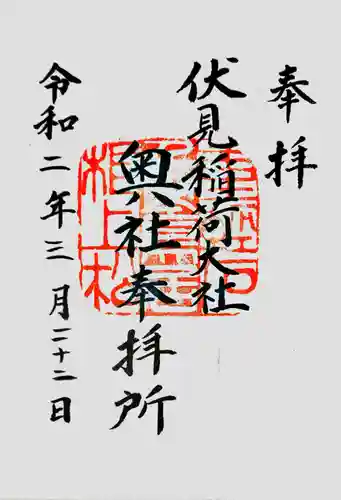 奉拝
伏見稲荷大社
奥社奉拝所
令和二年三月二十二日